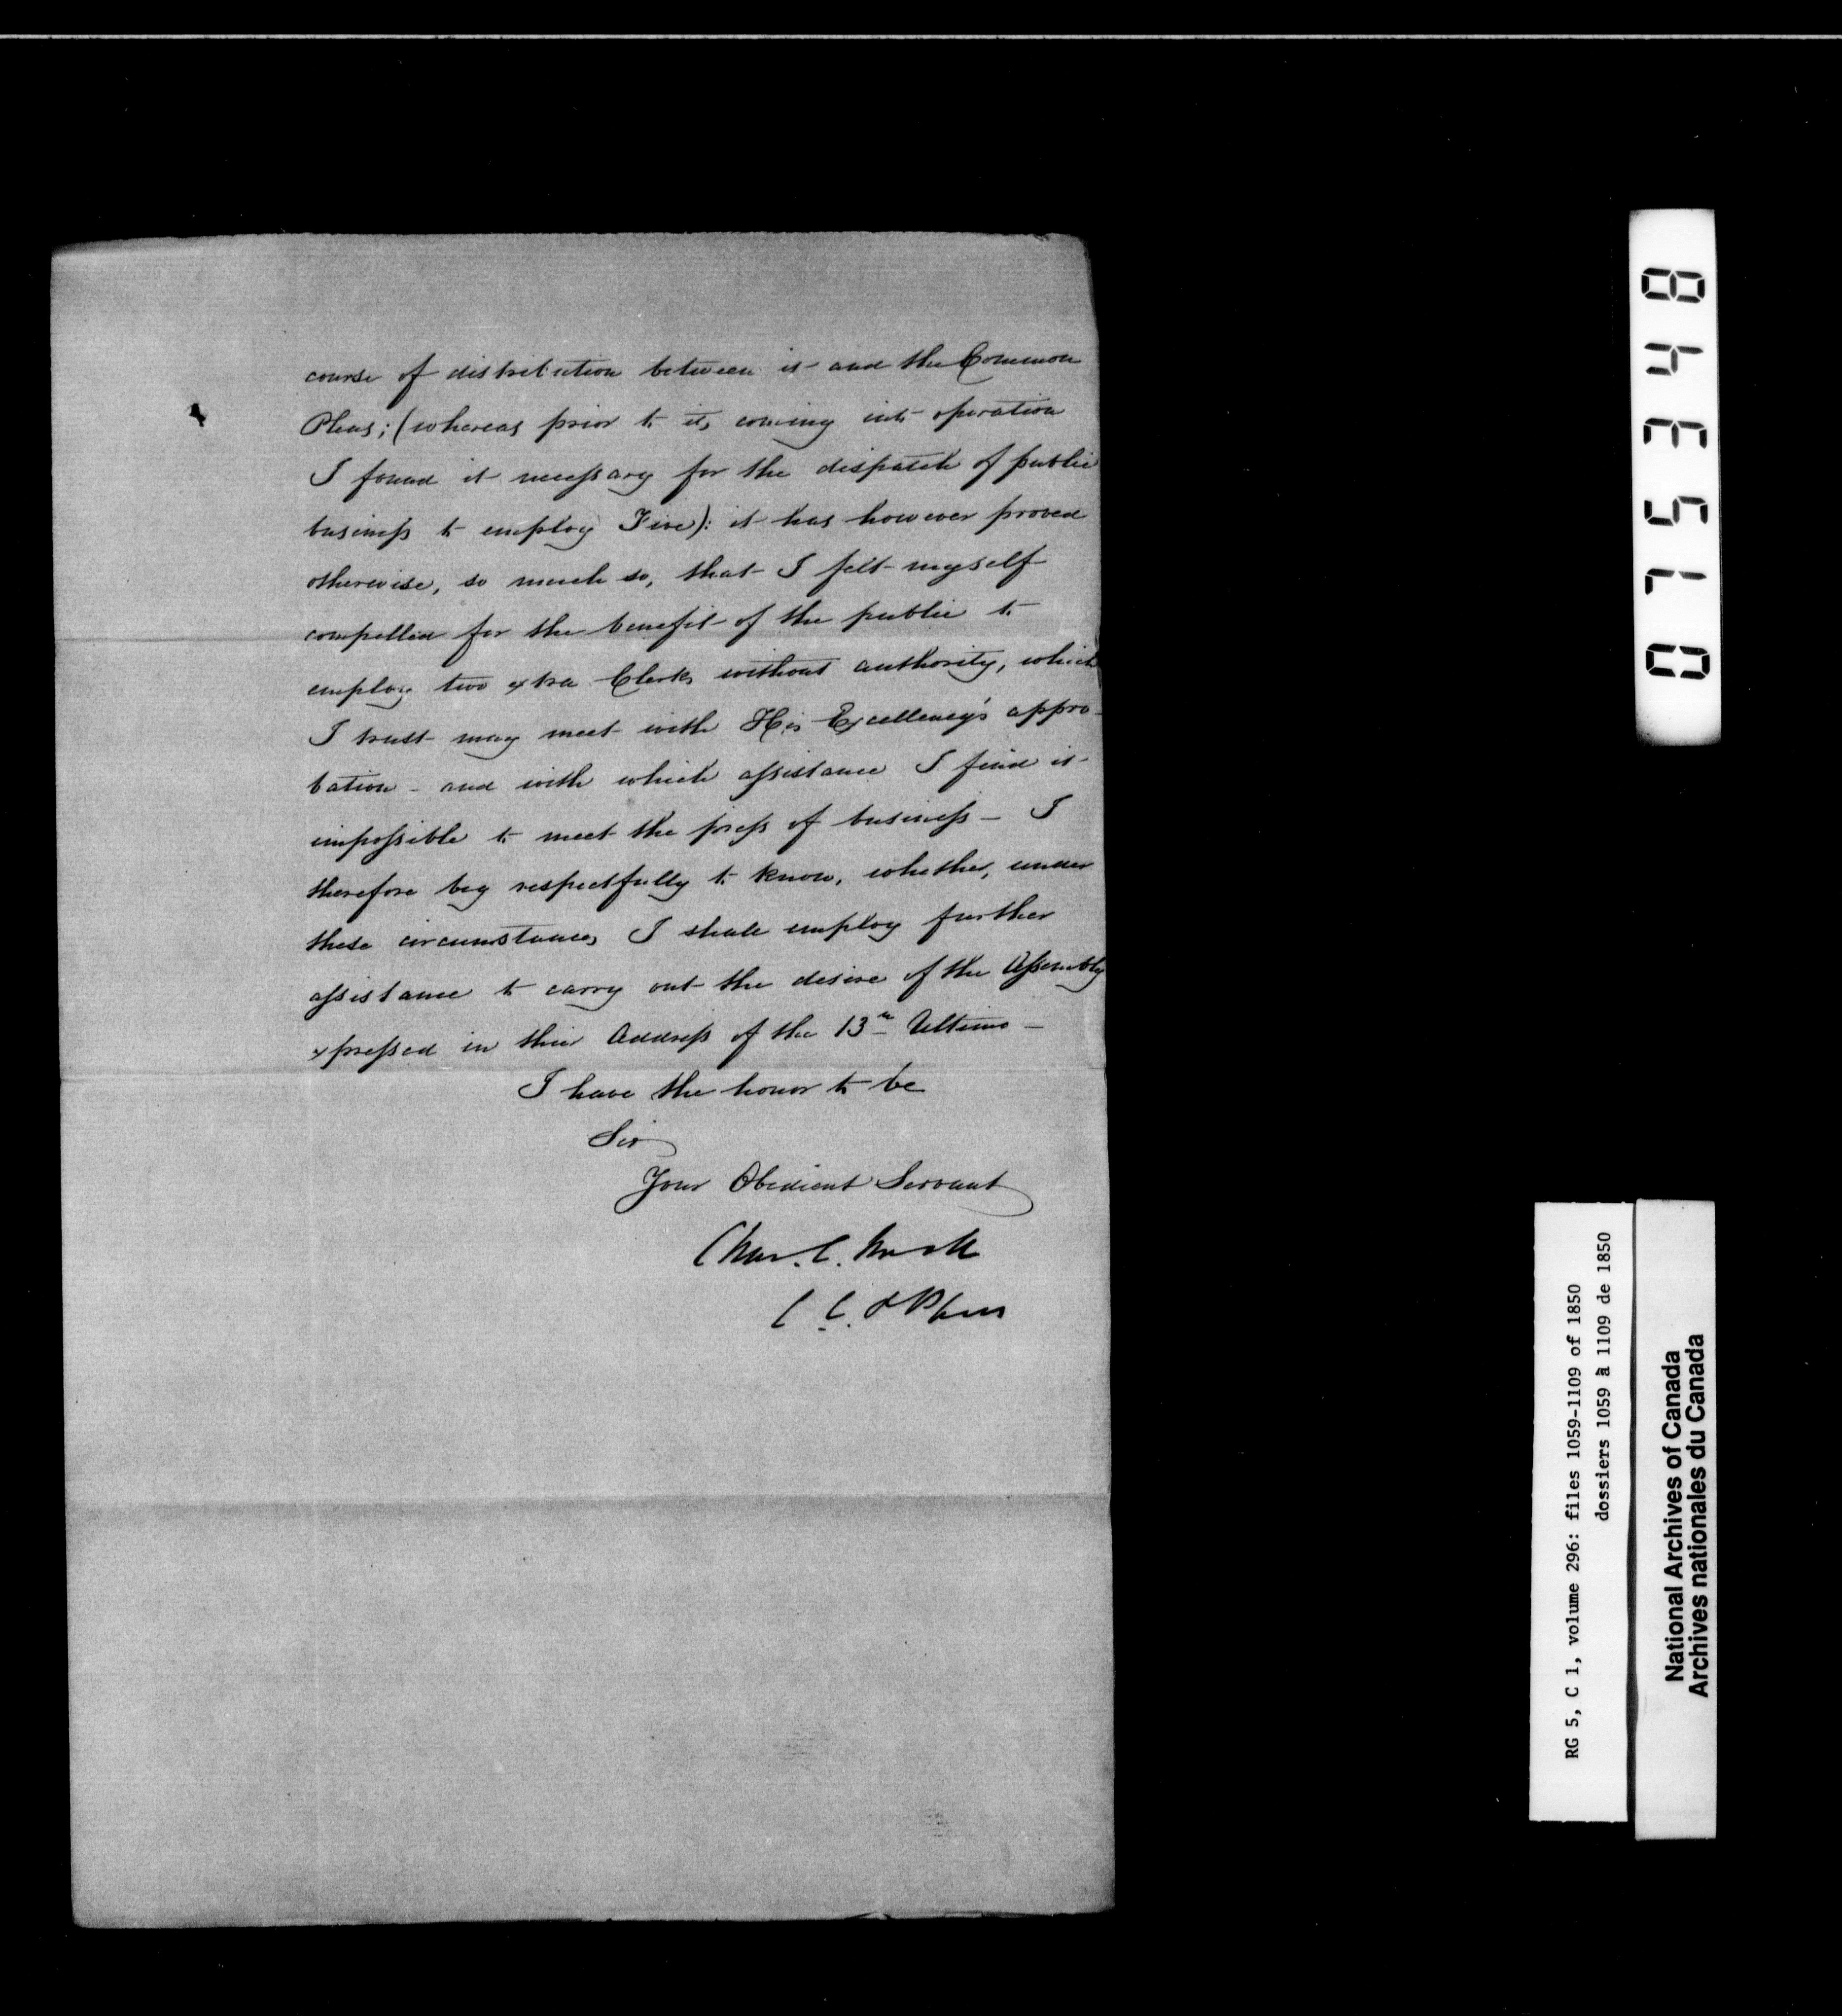 course of distribution between it and the Common
Pleas; (whereas prior to its coming into operation
I found it necessary for the dispatch of public
business to employ Five): it has however proved
otherwise, so much so, that I felt myself
compelled for the benefit of the public to
employ two extra Clerks without authority, which
I trust may meet with His Excellency's appro-
bation - and with which assistance I find it
impossible to meet the press of business - I
therefore beg respectfully to know, whether, under
these circumstances I shall employ further
assistance to carry out the desire of the Assembly
expressed in their Address of the 13th Ultimo -
I have the honor to be
Sir
Your Obedient Servant
Chas. C. Small
C. C. & Pleas
843510
RG 5, C 1, volume 296: files 1059-1109 of 1850
dossiers 1059 à 1109 de 1850
National Archives of Canada
Archives nationales du Canada